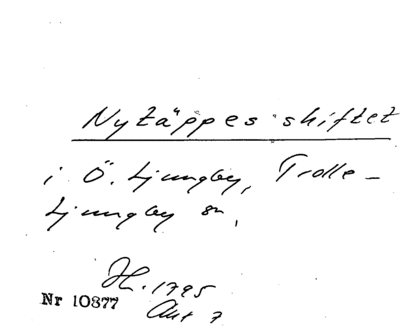 Nytäppes skiftet
i Ö. Ljungby, Trolle-
Ljungby sn,
H. 1795
Nr 10877
Akt 7